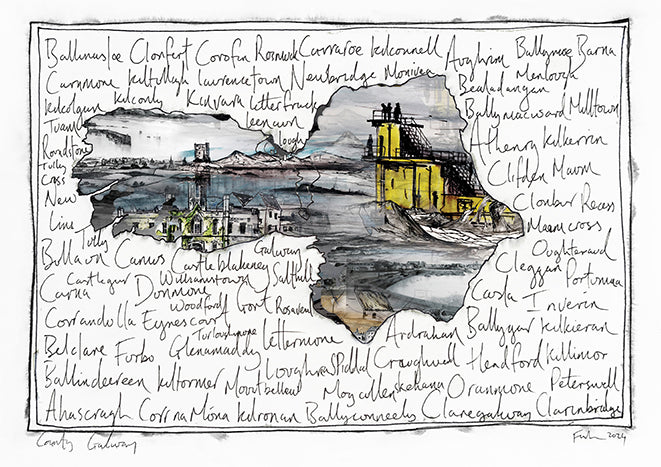 Ballinasloe Clonfert Corofin Rosmuck Carraroe Kilconnell Aughrim Ballymoe Barna
Carnmore Kiltullagh Lawrencetown Newbridge Monivea Bealadangan Menlough
Kilcolgan Kilconly Kinvara Letterfrack Ballymacward Milltown
Tuam Leenaun Athenry Kilkerrin
Roundstone Lough
Tully Cross Clifden Maam
New Clonbur Recess
Line Maam cross
Tully Oughterard
Billown Camus Castleblakeney Galway Cleggan Portumna
Castlegar Williamstown Salthill
Carna Dunmore Casla Inverin
Woodford Gort Rosaveal
Corrandolla Eyrescourt Turloughmore Ardrahan Ballygar Kilkieran
Belclare Furbo Glenamaddy Lettermore
Loughrea Spiddal Craughwell Headford Killimor
Ballinderreen Kiltormer Mountbellew Moycullen Skehana Oranmore Peterswell
Ahascragh Corr na Móna Kilronan Ballyconneely Claregalway Clarinbridge
County Galway
2024